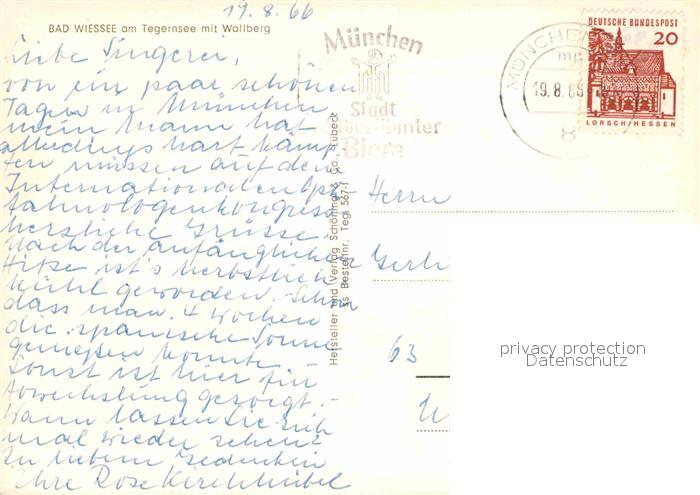 19.8.66
BAD WIESSEE am Tegernsee mit Wallberg
Liebe Singerei,
von ein paar schönen
Tagen in München
mein Mann hat
allerdings hart kämp-
fen müssen auf dem
Internationalen
herzliche Grüsse.
Nach der anfänglichen
Hitze ist's herbstlich
kühl geworden. Schön
dass man 4 Wochen
die spanische Sonne
geniessen konnte.
Sonst ist hier für
Abwechslung gesorgt. -
Wann lassen Sie sich
mal wieder sehen?
In liebem Gedenken
Ihre Rose Kirchhübel
Hersteller und Verlag Schöning & Co., Lübeck
SS Bestellnr. Teg 567-1
München
Stadt
weltberühmter
Biere
MÜNCHEN
19.8.66
8
DEUTSCHE BUNDESPOST
20
LORSCH/HESSEN
Herrn
63
privacy protection
Datenschutz